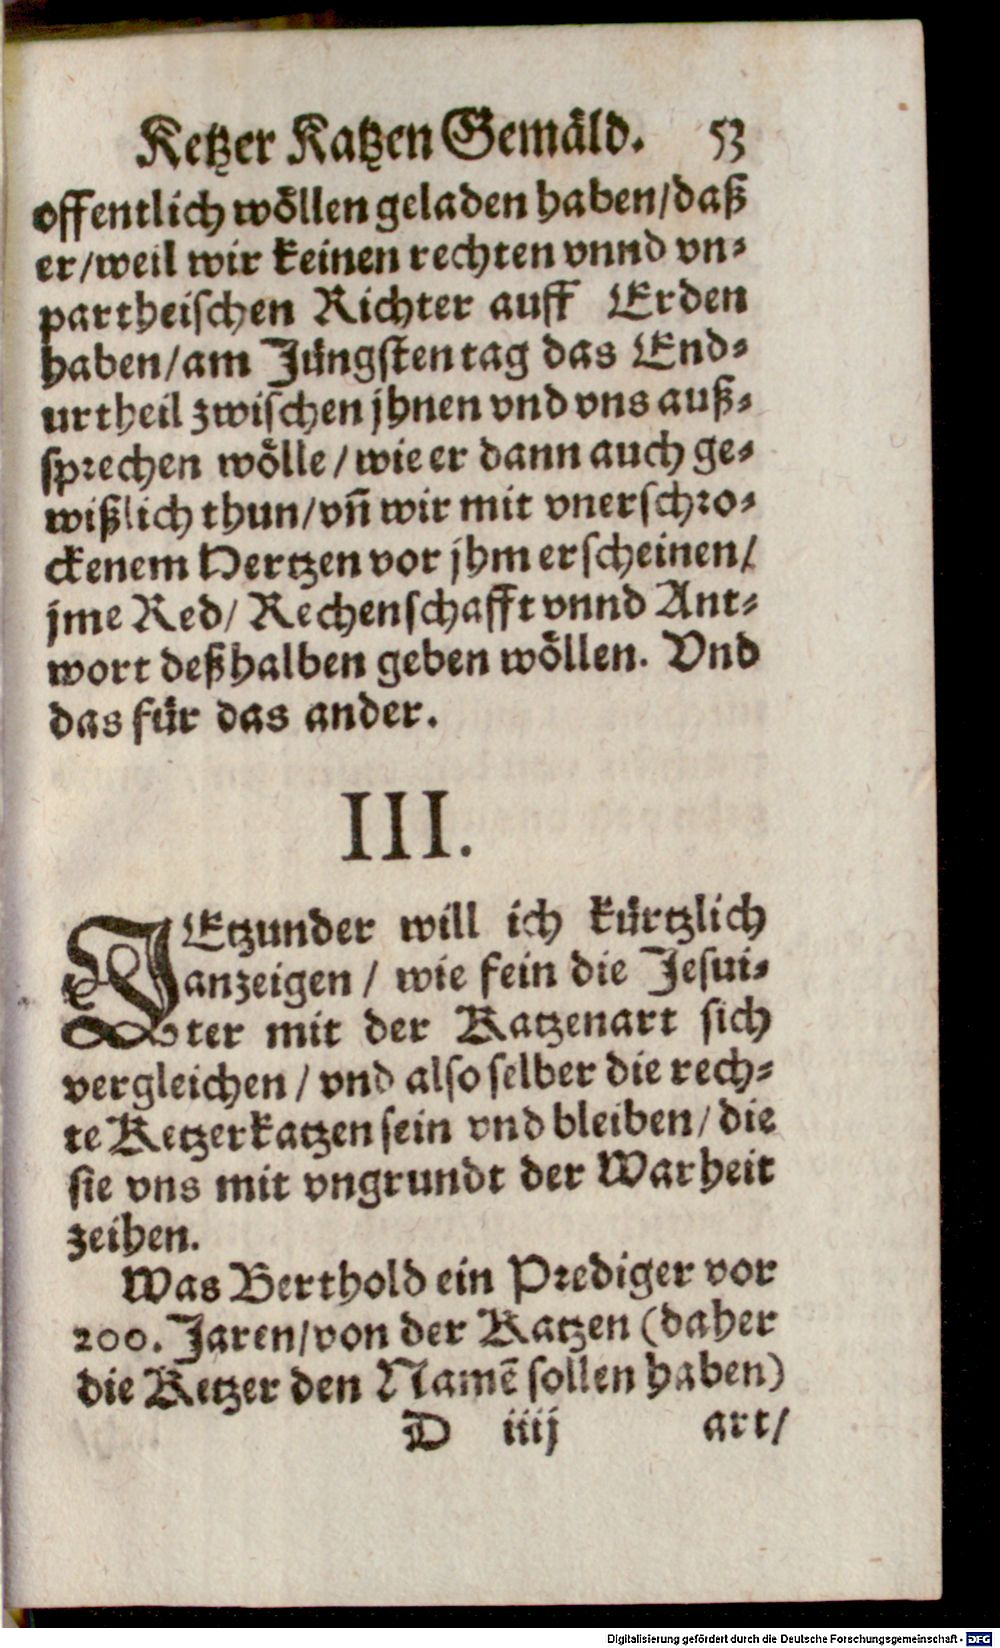 Ketzer Katzen Gemäld. 53
offentlich wöllen geladen haben/daß
er/weil wir keinen rechten vnnd vn-
partheischen Richter auff Erden
haben/am Jüngsten tag das End-
urtheil zwischen jhnen vnd vns auß-
sprechen wölle/wie er dann auch ge-
wißlich thun/vñ wir mit vnerschro-
ckenem Hertzen vor jhm erscheinen/
jme Red/Rechenschafft vnnd Ant-
wort deßhalben geben wöllen. Vnd
das für das ander.
III.
JEtzunder will ich kürtzlich
anzeigen/wie fein die Jesui-
ter mit der Katzenart sich
vergleichen/vnd also selber die rech-
te Ketzerkatzen sein vnd bleiben/die
sie vns mit vngrundt der Warheit
zeihen.
Was Berthold ein Prediger vor
200. Jaren/von der Katzen (daher
die Ketzer den Namẽ sollen haben)
D iiij art/
Digitalisierung gefördert durch die Deutsche Forschungsgemeinschaft - DFG